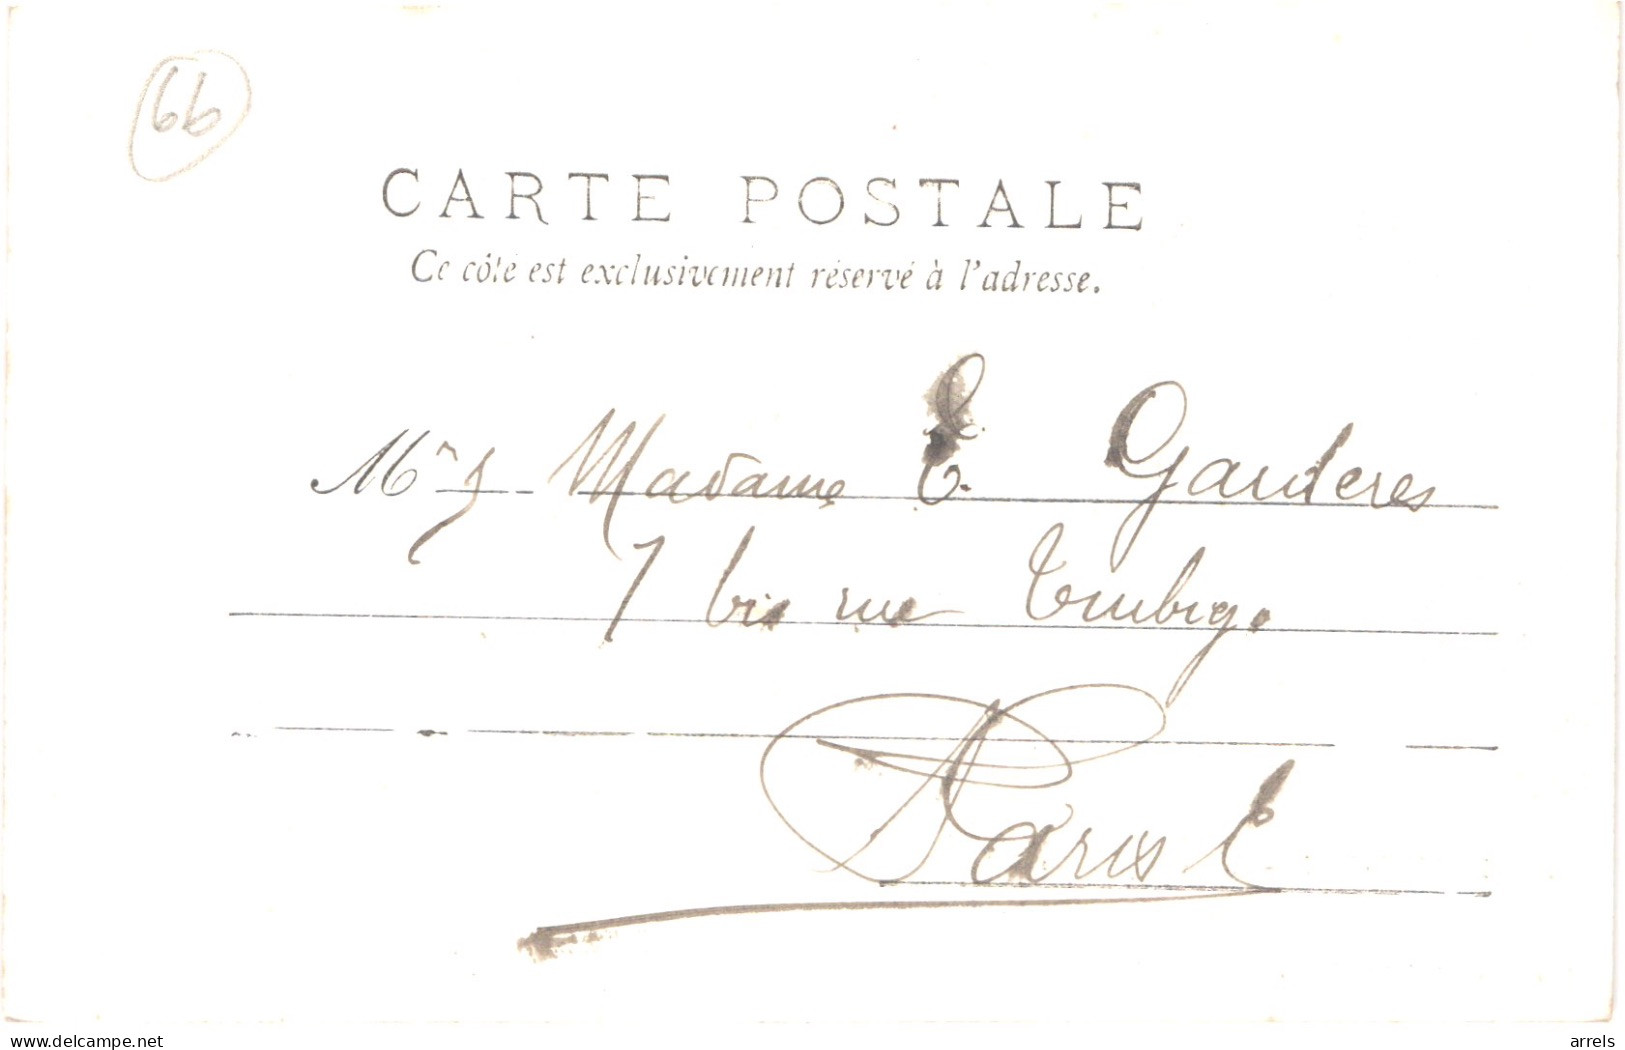 66
CARTE POSTALE
Ce côté est exclusivement réservé à l'adresse.
Mrs Madame E. Garderes
7 bis rue Turbigo
Paris E
delcampe.net
arrels